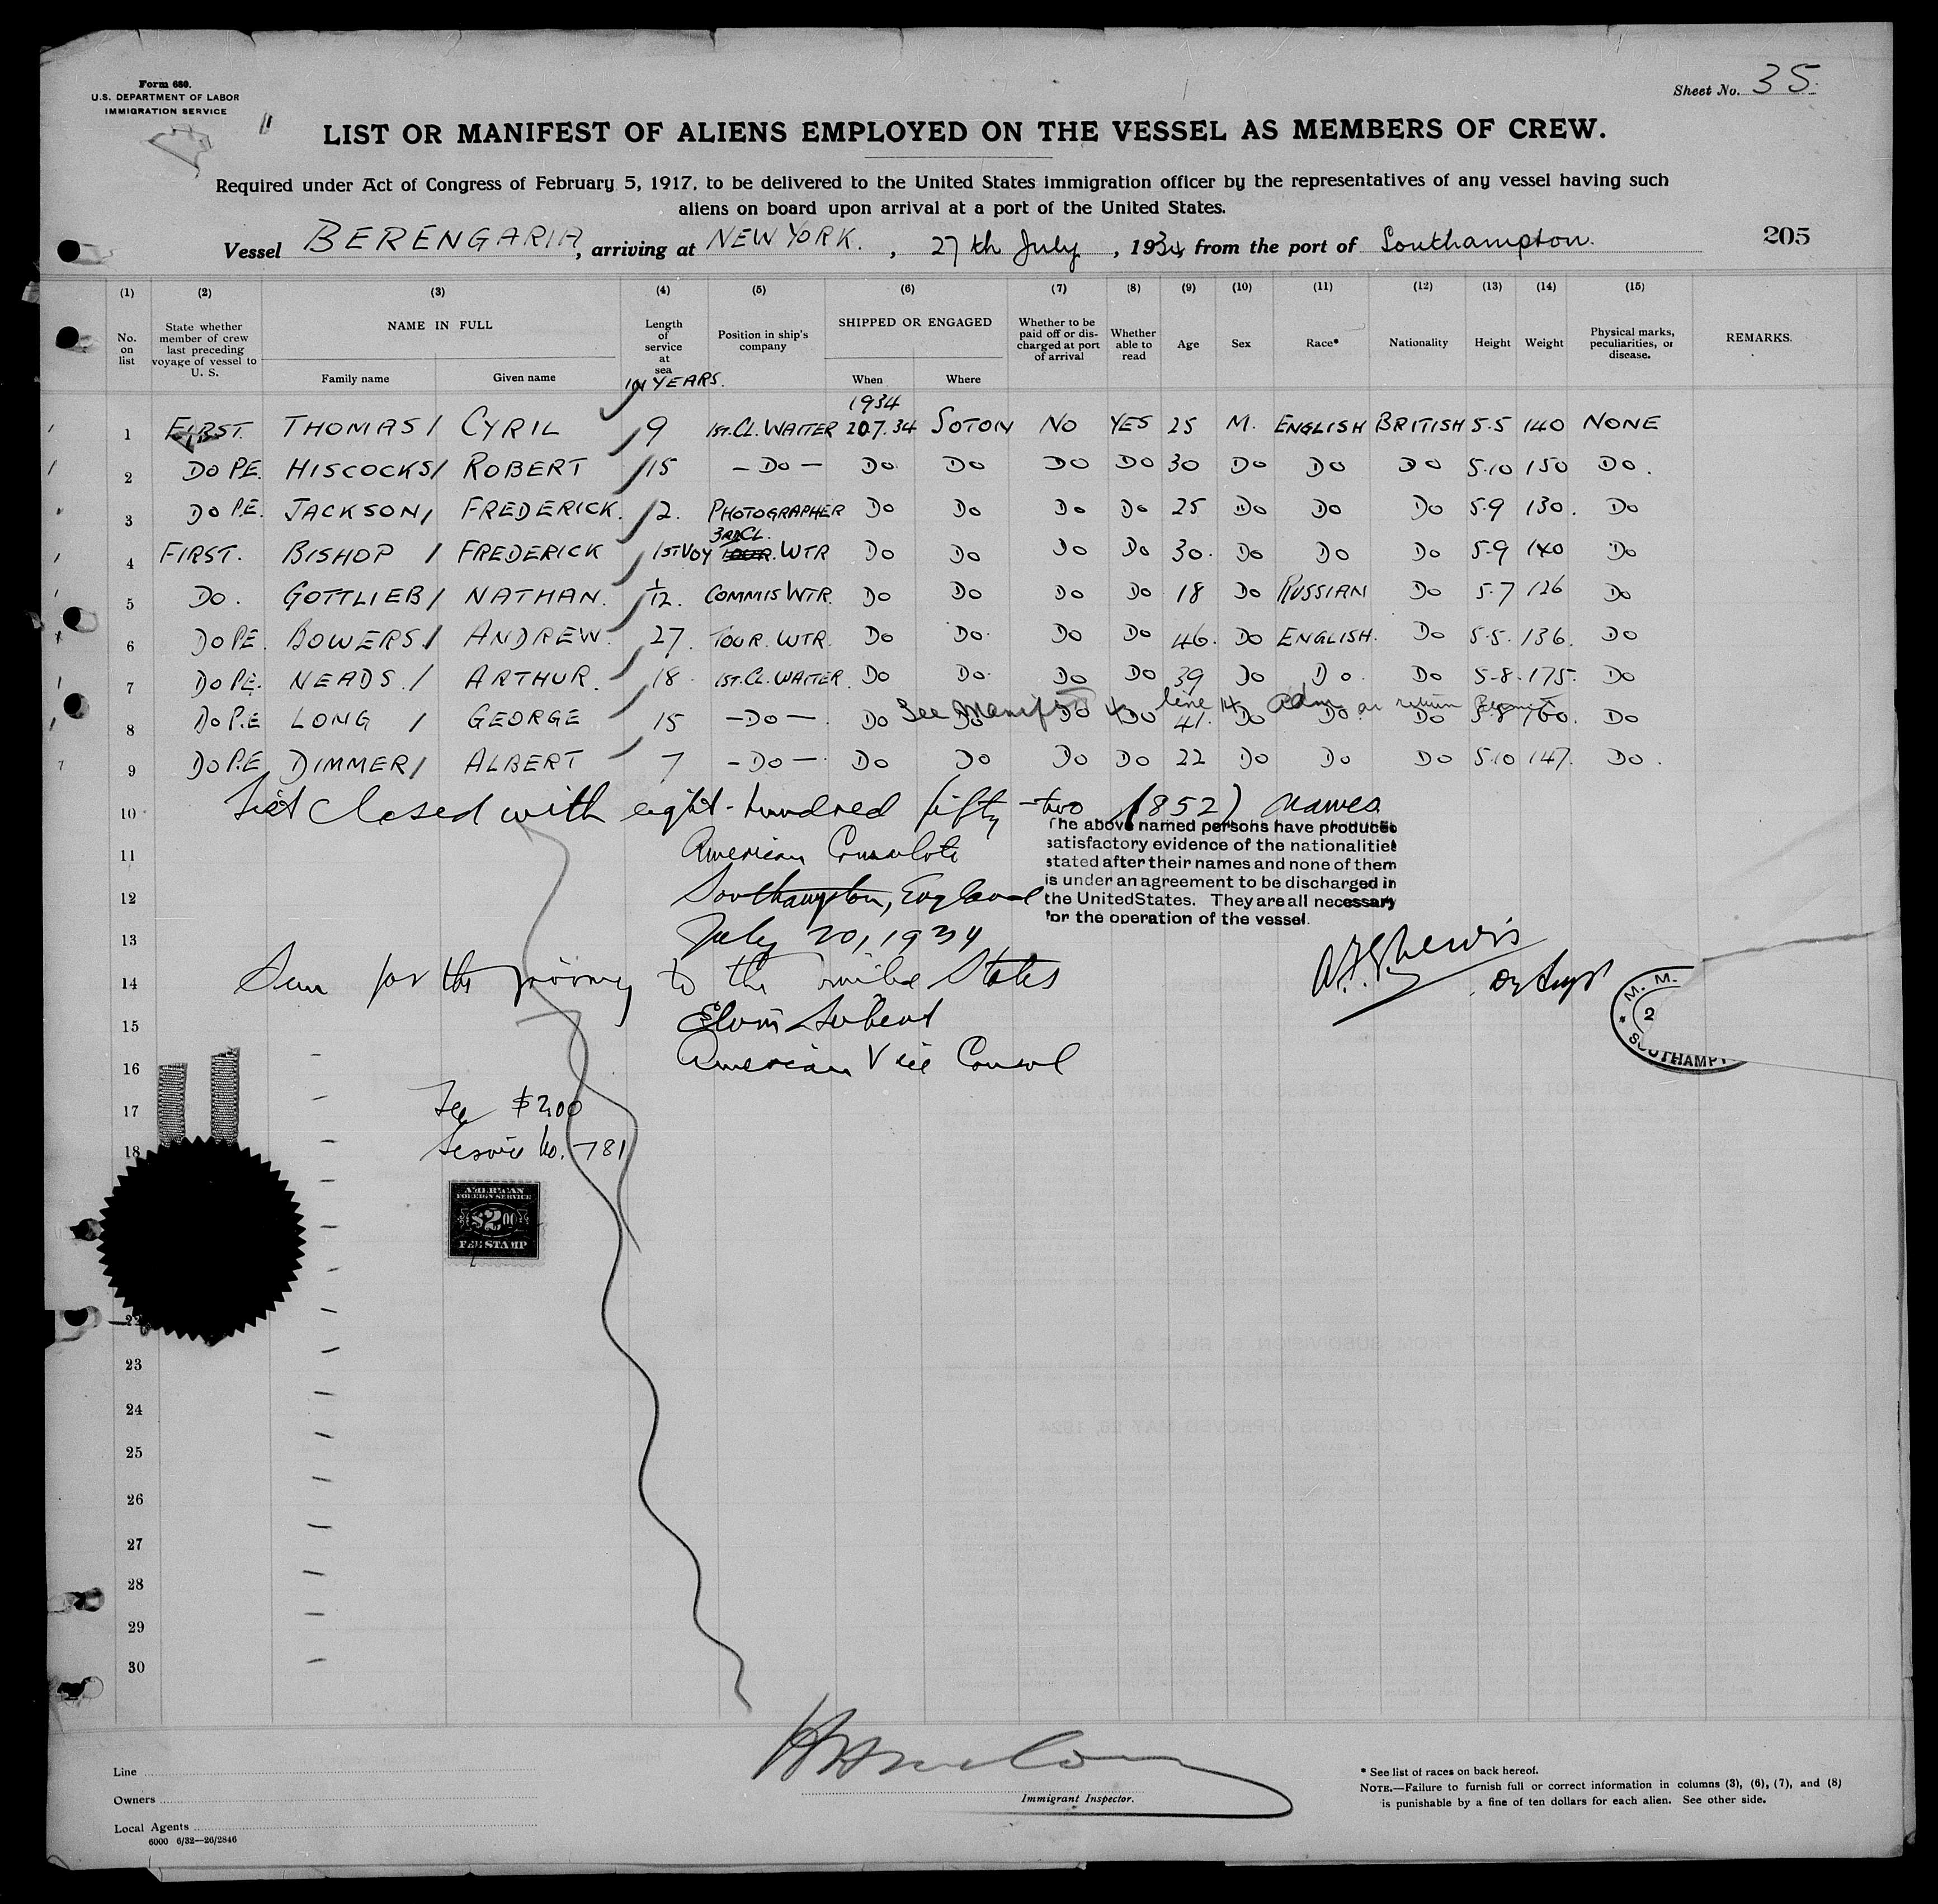 Form 680.
U.S. DEPARTMENT OF LABOR
IMMIGRATION SERVICE
Sheet No. 35.
LIST OR MANIFEST OF ALIENS EMPLOYED ON THE VESSEL AS MEMBERS OF CREW.
Required under Act of Congress of February 5, 1917, to be delivered to the United States immigration officer by the representatives of any vessel having such
aliens on board upon arrival at a port of the United States.
Vessel BERENGARIA, arriving at NEW YORK., 27th July, 1934, from the port of Southampton.
205
(1) (2) (3) (4) (5) (6) (7) (8) (9) (10) (11) (12) (13) (14) (15)
No. on list
State whether member of crew last preceding voyage of vessel to U. S.
NAME IN FULL
Family name Given name
Length of service at sea
IN YEARS.
Position in ship's company
SHIPPED OR ENGAGED
When Where
Whether to be paid off or discharged at port of arrival
Whether able to read
Age
Sex
Race*
Nationality
Height
Weight
Physical marks, peculiarities, or disease.
REMARKS.
1934
1 FIRST. THOMAS / CYRIL 9 1ST.CL.WAITER 20.7.34 SOTON NO YES 25 M. ENGLISH BRITISH 5.5 140 NONE
2 DO P.E. HISCOCKS / ROBERT 15 -DO- DO DO DO DO 30 DO DO DO 5.10 150 DO.
3 DO P.E. JACKSON / FREDERICK. 2. PHOTOGRAPHER DO DO DO DO 25 DO DO DO 5.9 130. DO
3RD CL.
4 FIRST. BISHOP / FREDERICK 1ST VOY WTR DO DO DO DO 30. DO DO DO 5.9 140 DO
5 DO. GOTTLIEB / NATHAN. 1/12. COMMIS WTR. DO DO DO DO 18 DO RUSSIAN DO 5.7 126 DO
6 DO P.E. BOWERS / ANDREW. 27. TOUR. WTR. DO DO. DO DO 46. DO ENGLISH. DO 5.5. 136. DO
7 DO P.E. NEADS. / ARTHUR. 18. 1ST.CL.WAITER. DO DO. DO DO 39 DO DO. DO 5-8. 175. DO
See Manifest 4 line 14 adm on return Permit
8 DO P.E LONG / GEORGE 15 -DO-. DO DO DO DO 41. DO DO DO 5.8 160. DO
9 DO P.E. DIMMER / ALBERT 7 -DO-. DO DO DO DO 22 DO DO DO 5.10 147. DO.
10 List closed with eight-hundred fifty-two (852) names.
The above named persons have produced
satisfactory evidence of the nationalities
stated after their names and none of them
is under an agreement to be discharged in
the United States. They are all necessary
for the operation of the vessel.
11 American Consulate
12 Southampton, England
13 July 20, 1934
14 Seen for the journey to the United States
15
American Vice Consul
16
M. M.
2
SOUTHAMP
17 Fee $2.00
18 Service No. 781
AMERICAN
FOREIGN SERVICE
$2.00
FEE STAMP
22
23
24
25
26
27
28
29
30
Line
Owners
Local Agents
6000 6/32—26/2846
Immigrant Inspector.
* See list of races on back hereof.
NOTE.—Failure to furnish full or correct information in columns (3), (6), (7), and (8)
is punishable by a fine of ten dollars for each alien. See other side.